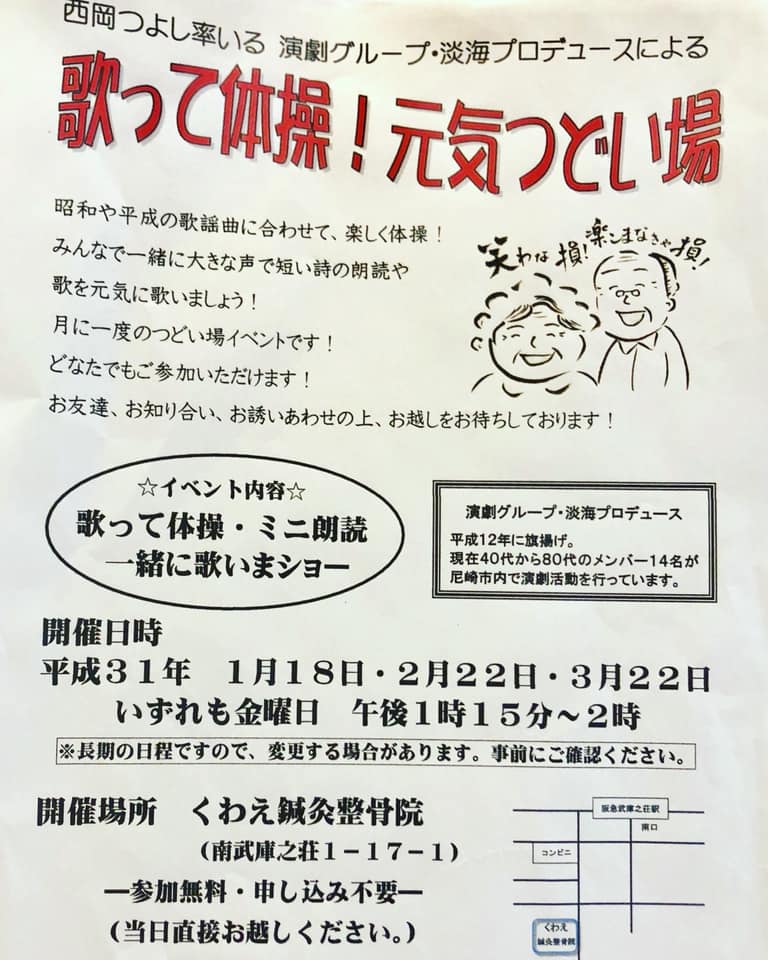 西岡つよし率いる 演劇グループ・淡海プロデュースによる
歌って体操！元気つどい場
昭和や平成の歌謡曲に合わせて、楽しく体操！
みんなで一緒に大きな声で短い詩の朗読や
歌を元気に歌いましょう！
月に一度のつどい場イベントです！
どなたでもご参加いただけます！
お友達、お知り合い、お誘いあわせの上、お越しをお待ちしております！
笑わな損！楽しまなきゃ損！
☆イベント内容☆
歌って体操・ミニ朗読
一緒に歌いまショー
演劇グループ・淡海プロデュース
平成12年に旗揚げ。
現在40代から80代のメンバー14名が
尼崎市内で演劇活動を行っています。
開催日時
平成３１年　１月１８日・２月２２日・３月２２日
いずれも金曜日　午後１時１５分～２時
※長期の日程ですので、変更する場合があります。事前にご確認ください。
開催場所　くわえ鍼灸整骨院
（南武庫之荘１－１７－１）
―参加無料・申し込み不要―
（当日直接お越しください。）
阪急武庫之荘駅
南口
コンビニ
くわえ
鍼灸整骨院